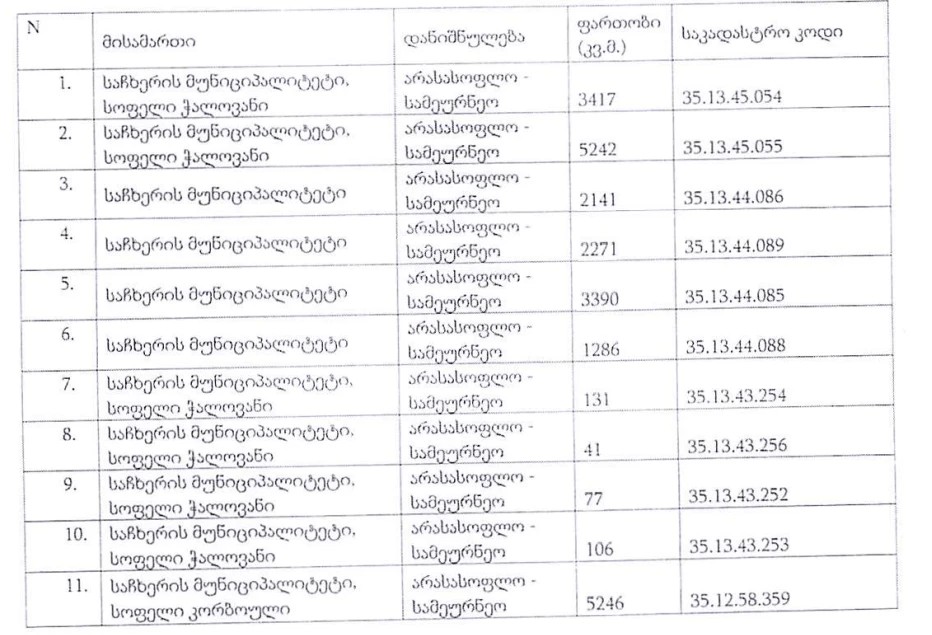 N მისამართი დანიშნულება ფართობი (კვ.მ.) საკადასტრო კოდი
1. საჩხერის მუნიციპალიტეტი, არასასოფლო -
სოფელი ჭალოვანი სამეურნეო 3417 35.13.45.054
2. საჩხერის მუნიციპალიტეტი, არასასოფლო -
სოფელი ჭალოვანი სამეურნეო 5242 35.13.45.055
3. საჩხერის მუნიციპალიტეტი არასასოფლო -
სამეურნეო 2141 35.13.44.086
4. საჩხერის მუნიციპალიტეტი არასასოფლო -
სამეურნეო 2271 35.13.44.089
5. საჩხერის მუნიციპალიტეტი არასასოფლო -
სამეურნეო 3390 35.13.44.085
6. საჩხერის მუნიციპალიტეტი არასასოფლო -
სამეურნეო 1286 35.13.44.088
7. საჩხერის მუნიციპალიტეტი, არასასოფლო -
სოფელი ჭალოვანი სამეურნეო 131 35.13.43.254
8. საჩხერის მუნიციპალიტეტი, არასასოფლო -
სოფელი ჭალოვანი სამეურნეო 41 35.13.43.256
9. საჩხერის მუნიციპალიტეტი, არასასოფლო -
სოფელი ჭალოვანი სამეურნეო 77 35.13.43.252
10. საჩხერის მუნიციპალიტეტი, არასასოფლო -
სოფელი ჭალოვანი სამეურნეო 106 35.13.43.253
11. საჩხერის მუნიციპალიტეტი, არასასოფლო -
სოფელი კორბოული სამეურნეო 5246 35.12.58.359